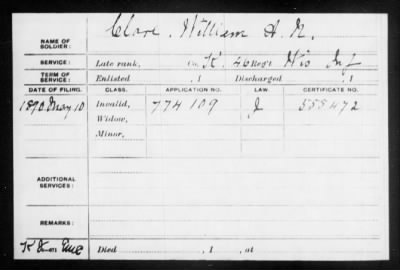 NAME OF SOLDIER: William
SERVICE: Late rank, Co. K, 46 Reg't Wis Inf
TERM OF SERVICE: Enlisted , 1 Discharged , 1
DATE OF FILING. CLASS. APPLICATION NO. LAW. CERTIFICATE NO.
1890 May 10 Invalid, 774 109 J 555472
Widow,
Minor,
ADDITIONAL SERVICES:
REMARKS:
Died , 1 , at